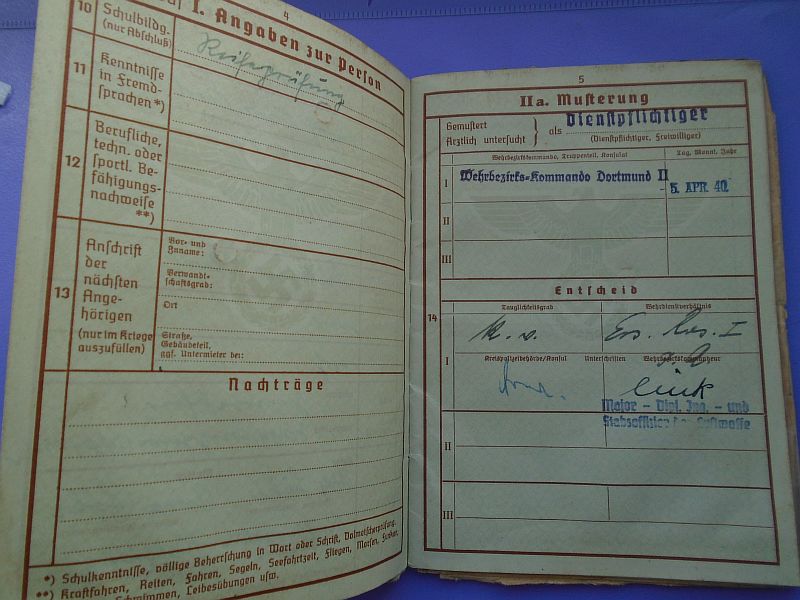 4
I. Angaben zur Person
10 Schulbildg.
(nur Abschluß)
Reifeprüfung
11 Kenntnisse
in Fremd-
sprachen*)
12 Berufliche,
techn. oder
sportl. Be-
fähigungs-
nachweise
**)
13 Anschrift
der
nächsten
Ange-
hörigen
(nur im Kriege
auszufüllen)
Vor- und
Zuname:
Verwandt-
schaftsgrad:
Ort
Straße,
Gebäudeteil,
ggf. Untermieter bei:
Nachträge
*) Schulkenntnisse, völlige Beherrschung in Wort oder Schrift, Dolmetscherprüfung.
**) Kraftfahren, Reiten, Fahren, Segeln, Seefahrtzeit, Fliegen, Morsen, Funken,
Schwimmen, Leibesübungen usw.
5
IIa. Musterung
Gemustert
Ärztlich untersucht } als Dienstpflichtiger
(Dienstpflichtiger, Freiwilliger)
Wehrbezirkskommando, Truppenteil, Konsulat
Tag, Monat, Jahr
I Wehrbezirks-Kommando Dortmund II
- 5. APR 40
II
III
Entscheid
14
Tauglichkeitsgrad
Wehrdienstverhältnis
k. v.
Ers. Res. I
I
Kreispolizeibehörde/Konsul
Unterschriften
Wehrbezirkskommandeur
Major - Dipl. Ing. - und
Stabsoffizier der Luftwaffe
II
III